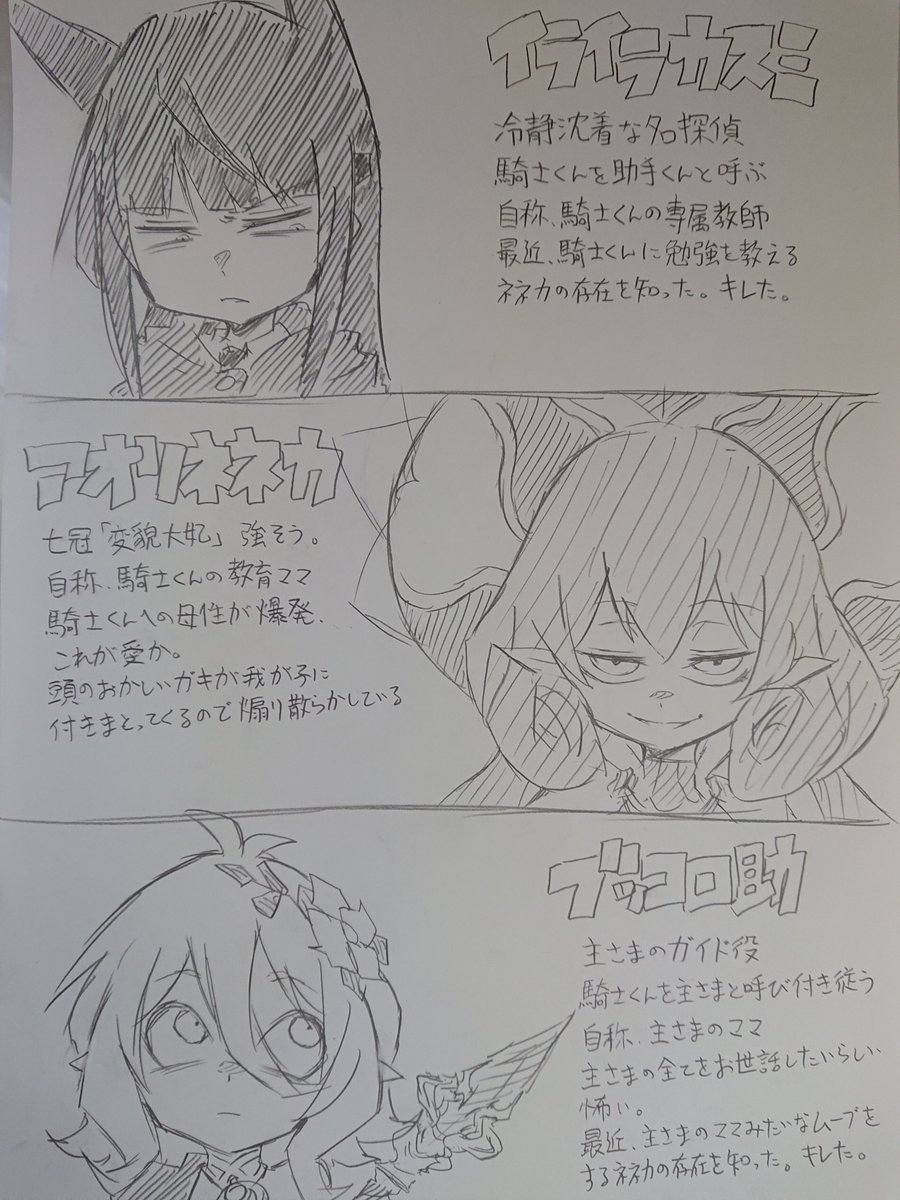 イライラカスミ
冷静沈着な名探偵
騎士くんを助手くんと呼ぶ
自称、騎士くんの専属教師
最近、騎士くんに勉強を教える
ネネカの存在を知った。キレた。
アオリネネカ
七冠「変貌大妃」強そう。
自称、騎士くんの教育ママ
騎士くんへの母性が爆発、
これが愛か。
頭のおかしいガキが我が子に
付きまとってくるので煽り散らかしている
ブッコロ助
主さまのガイド役
騎士くんを主さまと呼び付き従う
自称、主さまのママ
主さまの全てをお世話したいらしい
怖い。
最近、主さまのママみたいなムーブを
するネネカの存在を知った。キレた。